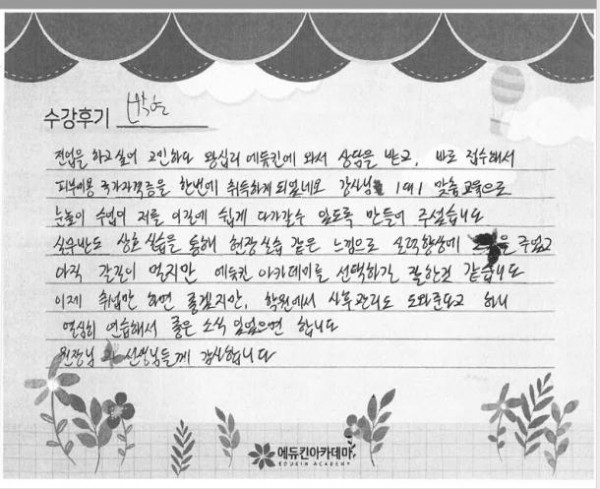 수강후기
전업을 하고싶어 고민하다 왕십리 에듀킨에 와서 상담을 받고, 바로 접수해서
피부미용 국가자격증을 한번에 취득하게 되었네요 강사님 1대1 맞춤교육으로
눈높이 수업이 저를 이끌에 쉽게 다가갈수 있도록 만들어 주셨습니다
실무반도 상호실습을 통해 현장실습 같은 느낌으로 실력향상에 을 주었고
아직 갈길이 멀지만 에듀킨 아카데미를 선택하길 잘한것 같습니다
이제 취업만 하면 좋겠지만, 학원에서 사후관리도 도와준다고 하니
열심히 연습해서 좋은 소식 있었으면 합니다
원장님 선생님들께 감사합니다
에듀킨아카데미
EDUKIN ACADEMY